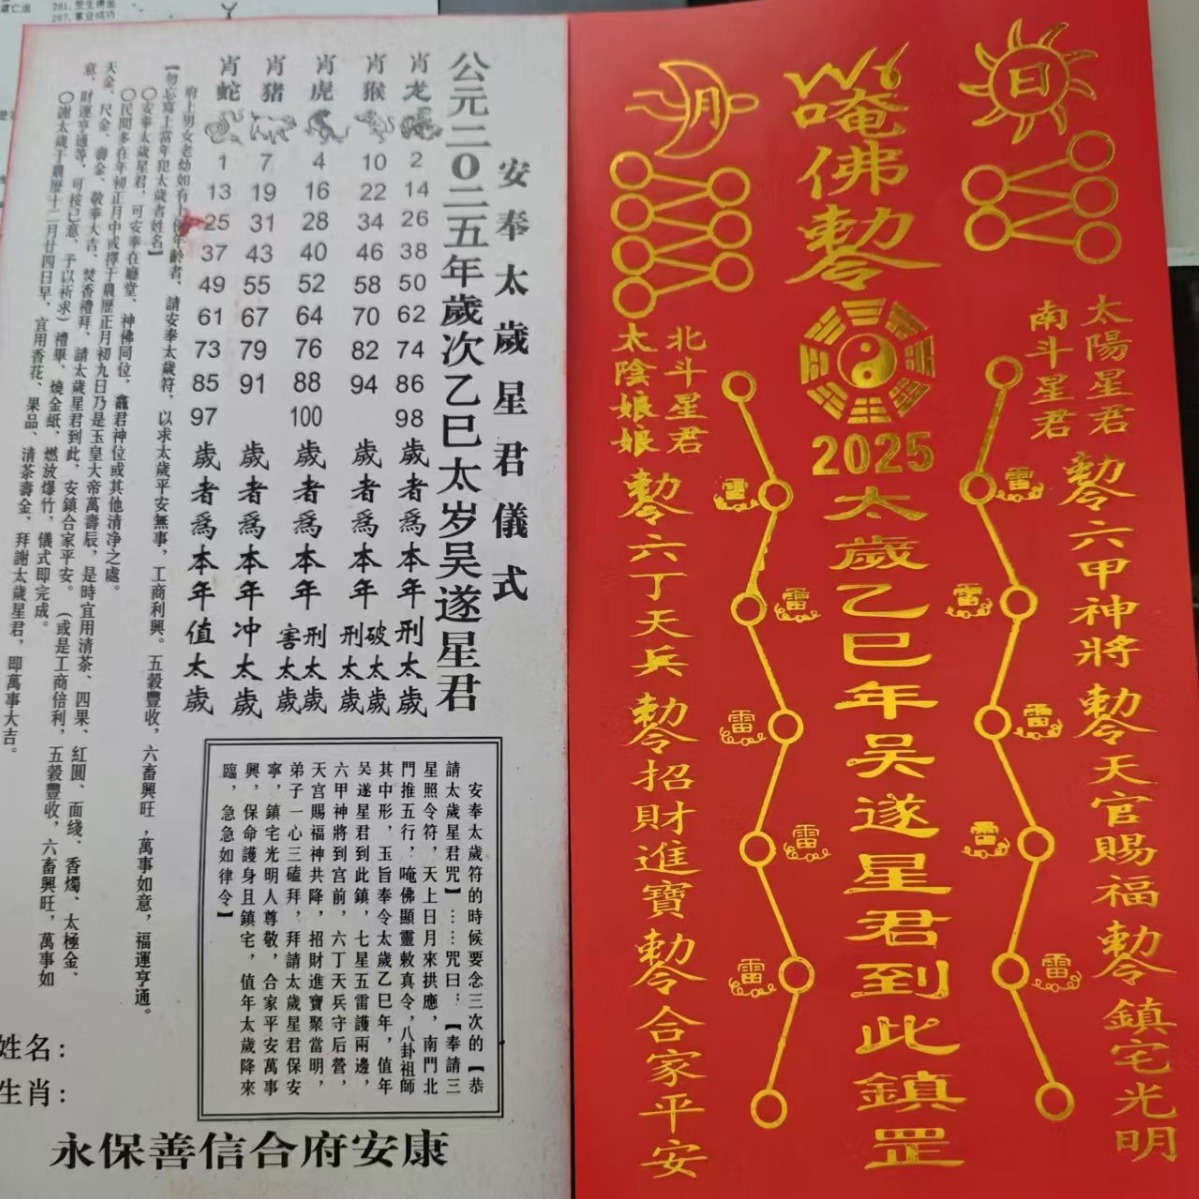 安奉太歲星君儀式
公元二0二五年歲次乙巳太岁吴遂星君
肖龙 2 14 26 38 50 62 74 86 98 歲者爲本年刑太歲
肖猴 10 22 34 46 58 70 82 94 歲者爲本年刑太歲破太歲
肖虎 4 16 28 40 52 64 76 88 100 歲者爲本年害太歲刑太歲
肖猪 7 19 31 43 55 67 79 91 歲者爲本年冲太歲
肖蛇 1 13 25 37 49 61 73 85 97 歲者爲本年值太歲
府上男女老幼如有上 年齡者、請安奉太歲符，以求太歲平安無事，工商利興。五穀豐收，六畜興旺，萬事如意，福運亨通。
【勿忘寫上當年犯太歲者姓名】
〇安奉太歲星君，可安奉在廳堂、神佛同位、竈君神位或其他清净之處。
〇民間多在年初正月中或擇于農歷正月初九日乃是玉皇大帝萬壽辰，是時宜用清茶、四果、紅圓、面綫、香燭、太極金、
天金、尺金、壽金、敬奉大吉、焚香禮拜，請太歲星君到此，安鎮合家平安。（或是工商倍利，五穀豐收，六畜興旺，萬事如
意，財運亨通等，可按已意，予以祈求）禮畢、燒金紙、燃放爆竹，儀式即完成。
〇謝太歲于農歷十二月廿四日早，宜用香花、果品、清茶壽金，拜謝太歲星君，即萬事大吉。
安奉太歲符的時候要念三次的【恭
請太歲星君咒】……咒曰：【奉請三
星照令符，天上日月來拱應，南門北
門推五行，唵佛顯靈敕真令，八卦祖師
其中形，玉旨奉令太歲乙巳年，值年
吴遂星君到此鎮，七星五雷護兩邊，
六甲神將到宫前，六丁天兵守后營，
天官賜福神共降，招財進寶聚當明，
弟子一心三磕拜，拜請太歲星君保安
寧，鎮宅光明人尊敬，合家平安萬事
興，保命護身且鎮宅，值年太歲降來
臨，急急如律令】
姓名：
生肖：
永保善信合府安康
日
月
唵佛勅令
2025
太歲乙巳年吴遂星君到此鎮罡
太陽星君
南斗星君
北斗星君
太陰娘娘
勅令六甲神將勅令天官賜福勅令鎮宅光明
勅令六丁天兵勅令招財進寶勅令合家平安
雷
雷
雷
雷
雷
雷
雷
雷
雷
雷